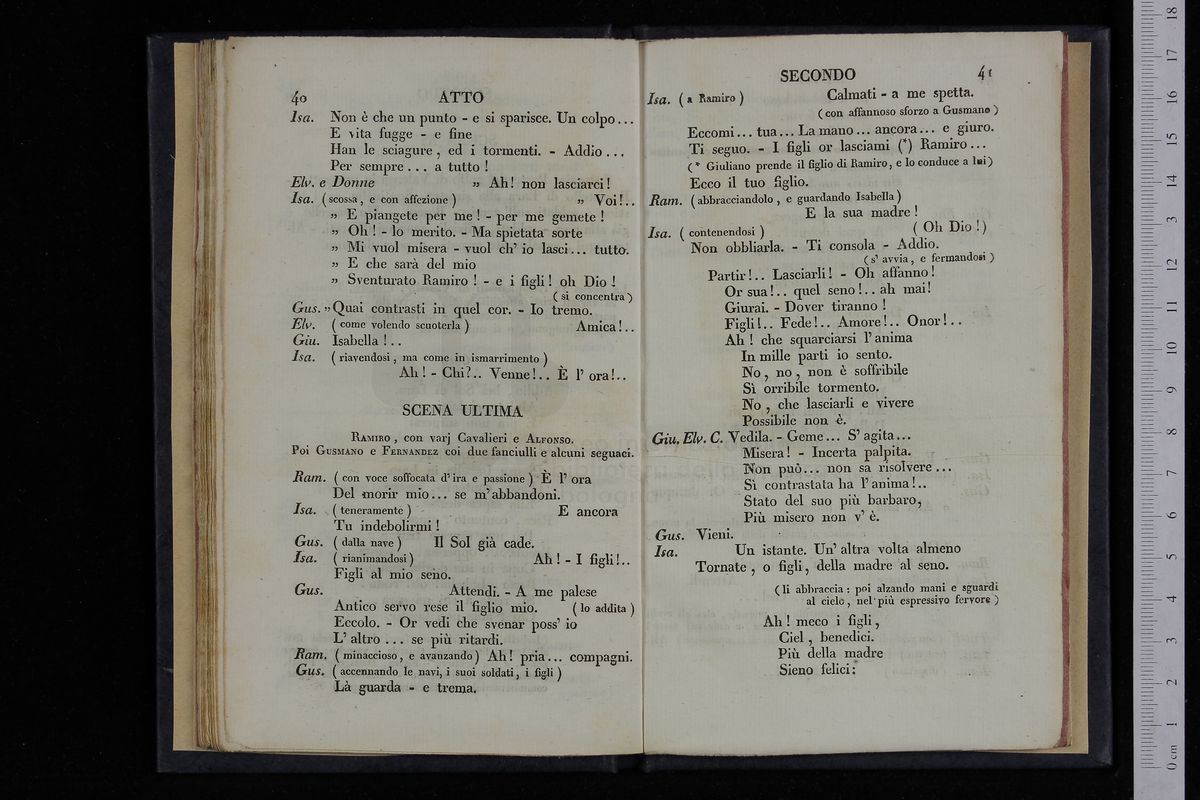 40 ATTO
Isa. Non è che un punto - e si sparisce. Un colpo...
E vita fugge - e fine
Han le sciagure, ed i tormenti. - Addio...
Per sempre... a tutto!
Elv. e Donne » Ah! non lasciarci!
Isa. (scossa, e con affezione) » Voi!..
» E piangete per me! - per me gemete!
» Oh! - lo merito. - Ma spietata sorte
» Mi vuol misera - vuol ch' io lasci... tutto.
» E che sarà del mio
» Sventurato Ramiro! - e i figli! oh Dio!
(si concentra)
Gus. » Quai contrasti in quel cor. - Io tremo.
Elv. (come volendo scuoterla) Amica!..
Giu. Isabella!..
Isa. (riavendosi, ma come in ismarrimento)
Ah! - Chi?.. Venne!.. È l' ora!..
SCENA ULTIMA
RAMIRO, con varj Cavalieri e ALFONSO.
Poi GUSMANO e FERNANDEZ coi due fanciulli e alcuni seguaci.
Ram. (con voce soffocata d' ira e passione) È l' ora
Del morir mio... se m' abbandoni.
Isa. (teneramente) E ancora
Tu indebolirmi!
Gus. (dalla nave) Il Sol già cade.
Isa. (rianimandosi) Ah! - I figli!..
Figli al mio seno.
Gus. Attendi. - A me palese
Antico servo rese il figlio mio. (lo addita)
Eccolo. - Or vedi che svenar poss' io
L' altro... se più ritardi.
Ram. (minaccioso, e avanzando) Ah! pria... compagni.
Gus. (accennando le navi, i suoi soldati, i figli)
Là guarda - e trema.
SECONDO 41
Isa. (a Ramiro) Calmati - a me spetta.
(con affannoso sforzo a Gusmano)
Eccomi... tua... La mano... ancora... e giuro.
Ti seguo. - I figli or lasciami (*) Ramiro...
(* Giuliano prende il figlio di Ramiro, e lo conduce a lui)
Ecco il tuo figlio.
Ram. (abbracciandolo, e guardando Isabella)
E la sua madre!
Isa. (contenendosi) (Oh Dio!)
Non obbliarla. - Ti consola - Addio.
(s' avvia, e fermandosi)
Partir!.. Lasciarli! - Oh affanno!
Or sua!.. quel seno!.. ah mai!
Giurai. - Dover tiranno!
Figli!.. Fede!.. Amore!.. Onor!..
Ah! che squarciarsi l' anima
In mille parti io sento.
No, no, non è soffribile
Sì orribile tormento.
No, che lasciarli e vivere
Possibile non è.
Giu. Elv. C. Vedila. - Geme... S' agita...
Misera! - Incerta palpita.
Non può... non sa risolvere...
Sì contrastata ha l' anima!..
Stato del suo più barbaro,
Più misero non v' è.
Gus. Vieni.
Isa. Un istante. Un' altra volta almeno
Tornate, o figli, della madre al seno.
(li abbraccia: poi alzando mani e sguardi
al cielo, nel più espressivo fervore)
Ah! meco i figli,
Ciel, benedici.
Più della madre
Sieno felici: